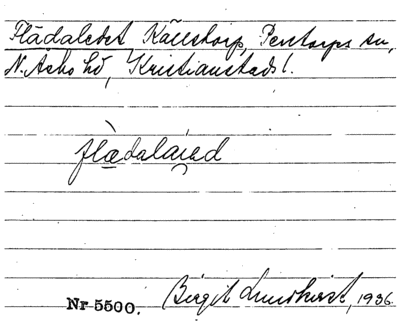 Flädaledet Källstorp, Perstorps sn,
N. Åsbo hd, Kristianstads l.
flædalaiəd
Birgit Lundkvist, 1936.
Nr 5500.